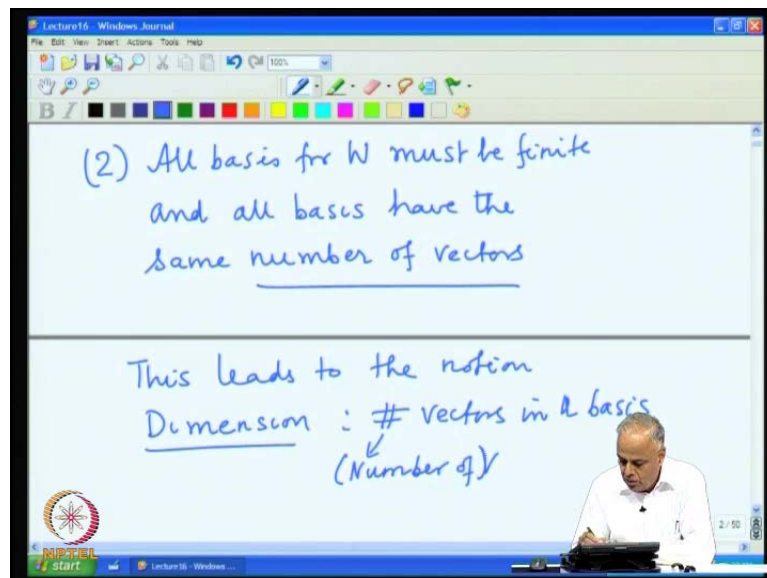 Lecture16 - Windows Journal
File Edit View Insert Actions Tools Help
100%
B I
(2) All basis for W must be finite
and all bases have the
same number of vectors
This leads to the notion
Dimension : # vectors in a basis
(Number of)
2 / 50
NPTEL
start
Lecture16 - Windows ...